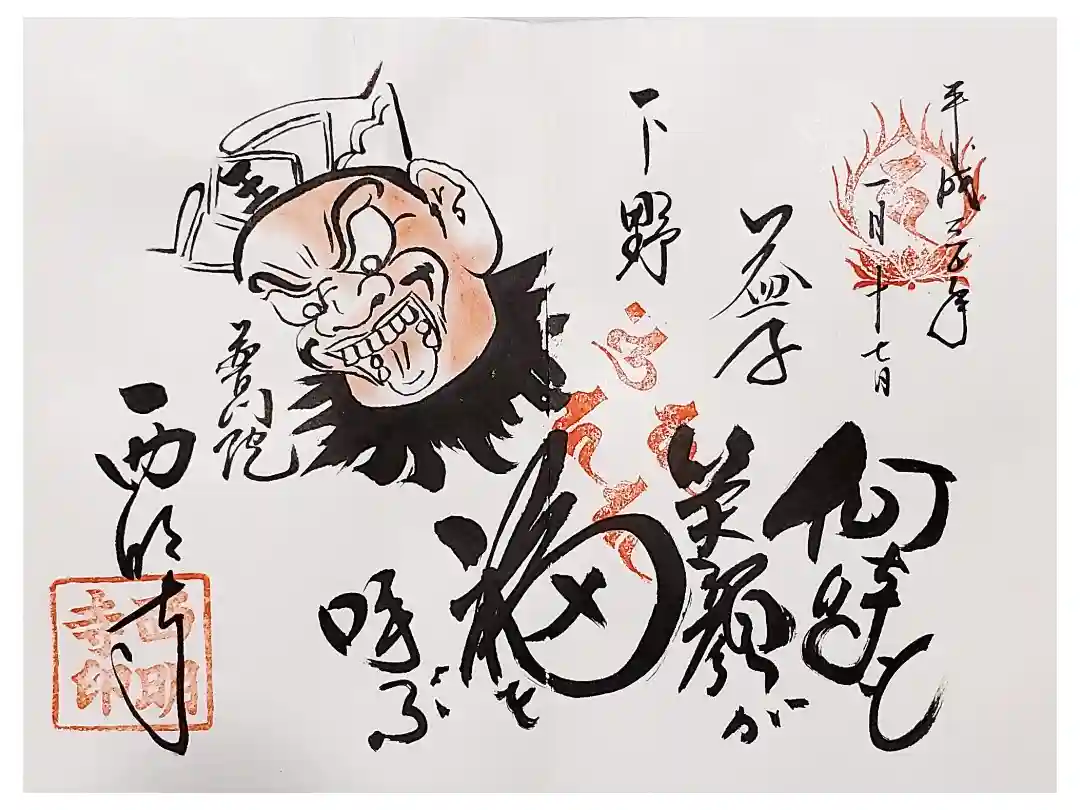 平成年
一月十七日
益子
下野
何時も
笑顔が
福を
呼ぶ
王
普門院
西明寺
西明
寺印